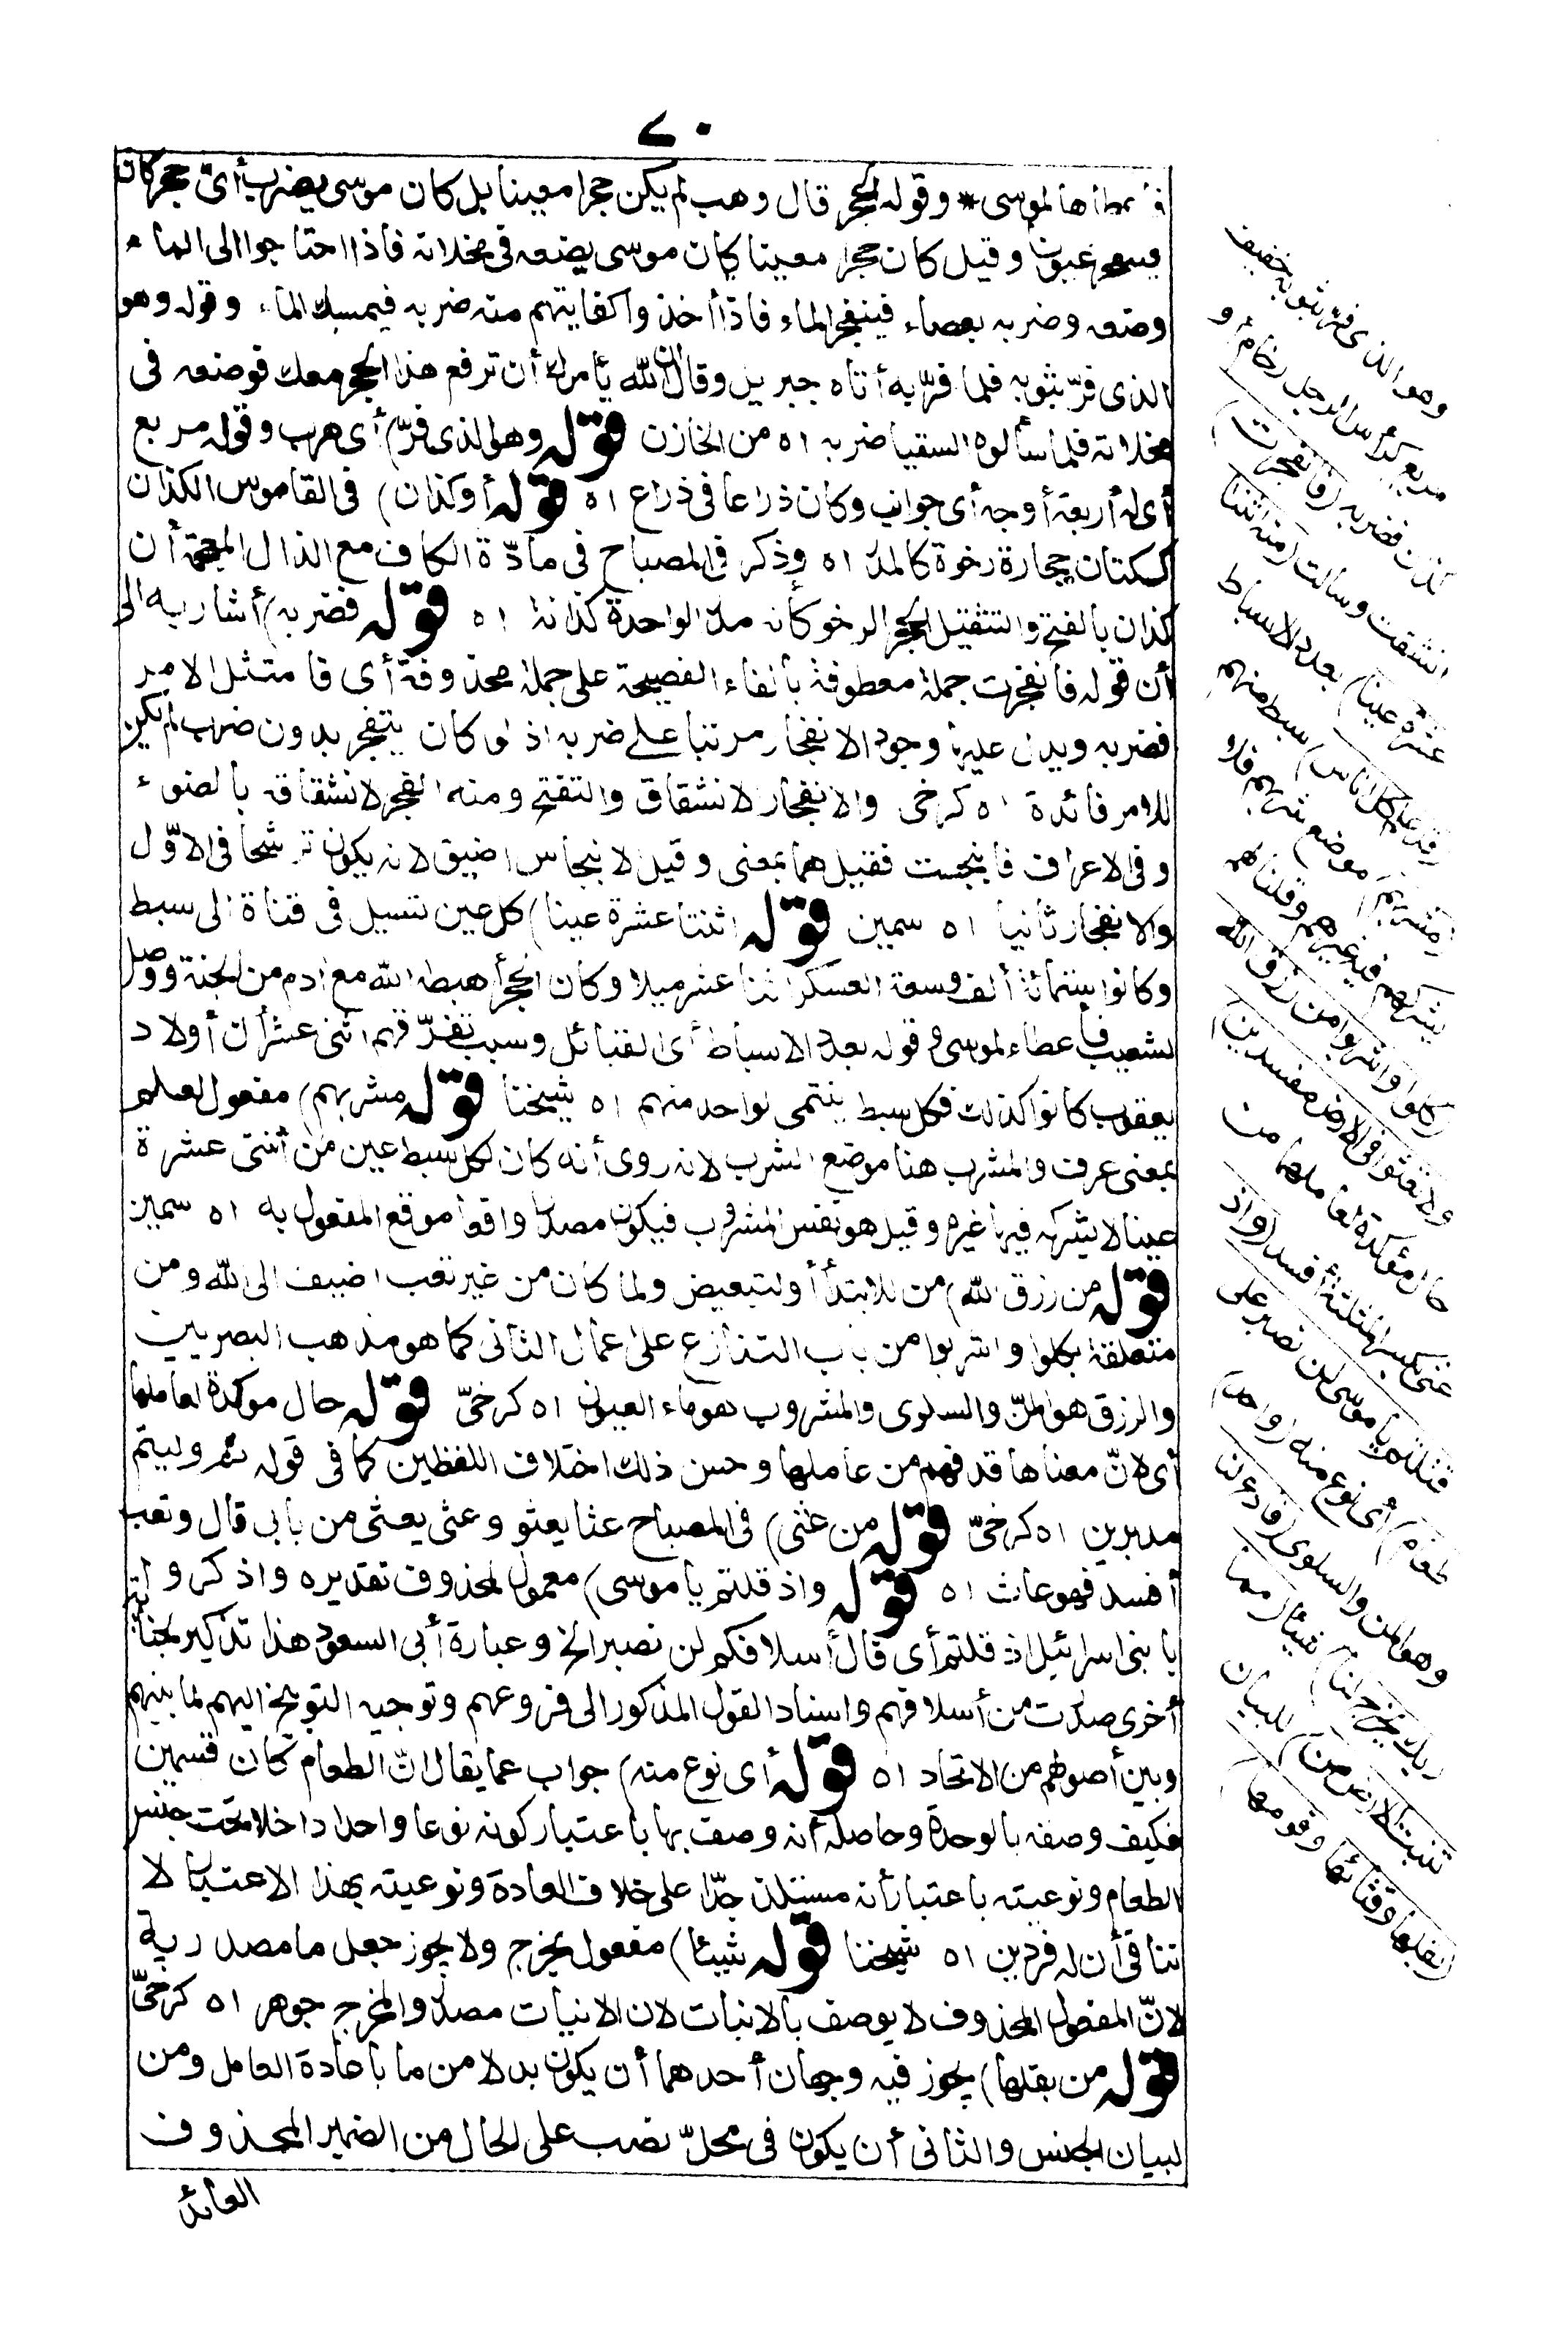 ٧٠
فأعطاها لموسى * وقوله الحجر قال وهب لم يكن حجرا معينا بل كان موسى يضرب أىّ حجر كان
فيتفجر عيونا وقيل كان حجرا معينا كان موسى يضعه فى مخلاته فاذا احتاجوا الى الماء
وضعه وضربه بعصاه فينفجر الماء فاذا أخذوا كفايتهم منه ضربه فيمسك الماء وقوله وهو
الذى فرّ بثوبه فلما فرّ به أتاه جبريل وقال ان الله يأمرك أن ترفع هذا الحجر معك فوضعه فى
مخلاته فلما سألوه السقيا ضربه اه من الخازن قوله وهو الذى فرّ) أى هرب وقوله مربع
أى له أربعة أوجه أى جوانب وكان ذراعا فى ذراع اه قوله أو كذان) فى القاموس الكذان
ككتان حجارة رخوة كالمدر اه وذكر فى المصباح فى مادّة الكاف مع الذال المعجمة أن
كذان بالفتح والتثقيل الحجر الرخو كأنه مدر الواحدة كذانة اه قوله فضربه) أشار به الى
أن قوله فانفجرت جملة معطوفة بالفاء الفصيحة على جملة محذوفة أى فامتثل الامر
فضربه ويدل عليه وجود الانفجار مرتبا على ضربه اذ لو كان يتفجر بدون ضرب لم يكن
للامر فائدة اه كرخى والانفجار الانشقاق والتفتح ومنه الفجر لانشقاقه بالضوء
وفى الاعراف فانبجست فقيل هما بمعنى وقيل الانبجاس اضيق لانه يكون ترشحا فى الاوّل
والانفجار ثانيا اه سمين قوله اثنتا عشرة عينا) كل عين تسيل فى قناة الى سبط
وكانوا ستمائة ألف وسعة العسكر اثنا عشر ميلا وكان الحجر أهبطه الله مع ادم من الجنة ووصل
لشعيب فأعطاه لموسى وقوله بعدد الاسباط أى القبائل وسبب تفرّقهم اثنى عشر أن أولاد
يعقوب كانوا كذلك فكل سبط ينتمى لواحد منهم اه شيخنا قوله مشربهم) مفعول لعلم
بمعنى عرف والمشرب هنا موضع الشرب لانه روى أنه كان لكل سبط عين من أثنتى عشرة
عينا لا يشركه فيها غيره وقيل هو نفس المشروب فيكون مصدرا واقعا موقع المفعول به اه سمين
قوله من رزق الله) من للابتدأ أو لتبعيض ولما كان من غير تعب اضيف الى الله ومن
متعلقة بكلوا واشربوا من باب التنازع على اعمال الثانى كما هو مذهب البصريين
والرزق هو المنّ والسلوى والمشروب هو ماء العيون اه كرخىّ قوله حال موكدة لعاملها
أى لانّ معناها قد فهم من عاملها وحسن ذلك اختلاف اللفظين كما فى قوله ثم وليتم
مدبرين اه كرخىّ قوله من عثى) فى المصباح عثا يعثو وعثى يعثى من بابى قال وتعب
أفسد فهو عاث اه قوله واذ قلتم يا موسى) معمول لمحذوف تقديره واذكروا
يا بنى اسرائيل اذ قلتم أى قال أسلافكم لن نصبر الخ وعبارة أبى السعود هذا تذكير لجناية
أخرى صدرت من أسلافهم واسناد القول المذكور الى فروعهم وتوجيه التوبيخ اليهم لما بينهم
وبين أصولهم من الاتحاد اه قوله أى نوع منه) جواب عما يقال انّ الطعام كان قسمين
فكيف وصفه بالوحدة وحاصله أنه وصف بها باعتبار كونه نوعا واحدا داخلا تحت جنس
الطعام ونوعيته باعتبار أنه مستلذ جدّا على خلاف العادة ونوعيته بهذا الاعتبار لا
تنافى أن له فردين اه شيخنا قوله شيئا) مفعول يخرج ولا يجوز جعل ما مصدرية
لانّ المفعول المحذوف لا يوصف بالانبات لان الانبات مصدر والمخرج جوهر اه كرخىّ
قوله من بقلها) يجوز فيه وجهان أحدهما أن يكون بدلا من ما باعادة العامل ومن
لبيان الجنس والثانى أن يكون فى محلّ نصب على الحال من الضمير المحذوف
العائد
وهو الذى فرّ بثوبه خفيف
مربع كرأس الرجل رخام أو
كذان فضربه (فانفجرت)
انشقت وسالت (منه اثنتا
عشرة عينا) بعدد الاسباط
(قد علم كل اناس) سبط منهم
(مشربهم) موضع شربهم فلا
يشركهم فيه غيرهم وقلنا لهم
(كلوا واشربوا من رزق الله
ولا تعثوا فى الارض مفسدين)
حال مؤكدة لعاملها من
عثى بكسر المثلثة أفسد (واذ
قلتم يا موسى لن نصبر على
طعام) أى نوع منه (واحد)
وهو المن والسلوى (فادع لنا
ربك يخرج لنا) شيئا (مما
تنبت الارض من) للبيان
(بقلها وقثائها وفومها)